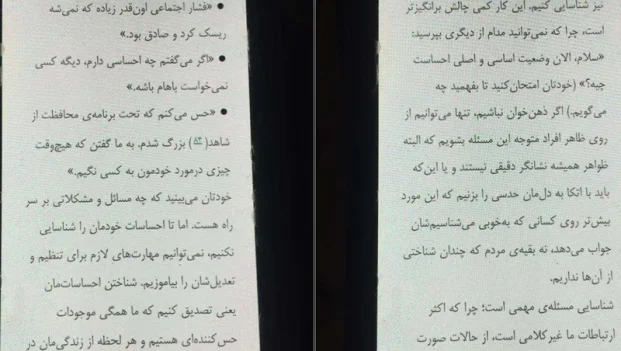 • «فشار اجتماعی اون‌قدر زیاده که نمی‌شه
ریسک کرد و صادق بود.»
• «اگر می‌گفتم چه احساسی دارم، دیگه کسی
نمی‌خواست باهام باشه.»
• «حس می‌کنم که تحت برنامه‌ی محافظت از
شاهد(۵۳) بزرگ شدم. به ما گفتن که هیچ‌وقت
چیزی درمورد خودمون به کسی نگیم.»
خودتان می‌بینید که چه مسائل و مشکلاتی بر سر
راه هست. اما تا احساسات خودمان را شناسایی
نکنیم، نمی‌توانیم مهارت‌های لازم برای تنظیم و
تعدیل‌شان را بیاموزیم. شناختن احساسات‌مان
یعنی تصدیق کنیم که ما همگی موجودات
حس‌کننده‌ای هستیم و هر لحظه از زندگی‌مان در
نیز شناسایی کنیم. این کار کمی چالش برانگیزتر
است، چرا که نمی‌توانید مدام از دیگری بپرسید:
«سلام، الان وضعیت اساسی و اصلی احساست
چیه؟» (خودتان امتحان کنید تا بفهمید چه
می‌گویم.) اگر ذهن‌خوان نباشیم، تنها می‌توانیم از
روی ظاهر افراد متوجه این مسئله بشویم که البته
ظواهر همیشه نشانگر دقیقی نیستند و یا این‌که
باید با اتکا به دل‌مان حدسی را بزنیم که این مورد
بیش‌تر روی کسانی که به‌خوبی می‌شناسیم‌شان
جواب می‌دهد، نه بقیه‌ی مردم که چندان شناختی
از آن‌ها نداریم.
شناسایی مسئله‌ی مهمی است؛ چرا که اکثر
ارتباطات ما غیرکلامی است، از حالات صورت